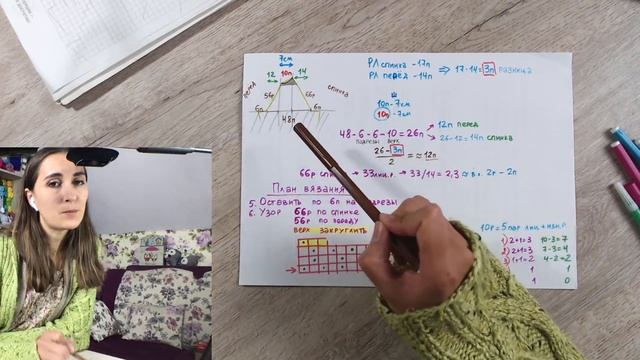 7см
10п
12
14
перед
спинка
56р
66р
6п
6п
48п
РЛ спинка - 17п
РЛ перёд - 14п
⇒ 17-14=3п разница
10п - 7см
10п - 7см
48-6-6-10=26п
подрезы верх
12п перед
26-12=14п спинка
26-3п
2
=≈12п
66р спи
→ 33лиц.р. → 33/14=2,3
2р - 2п
План вязания
5. Оставить по 6п на подрезы
6. Узор 66р по спинке
56р по переду
Верх закруглить
10р=5пар лиц+изн.р
1) 2+1=3 10-3=7
2) 2+1=3 7-3=4
3) 1+1=2 4-2=2
1 1
1 0